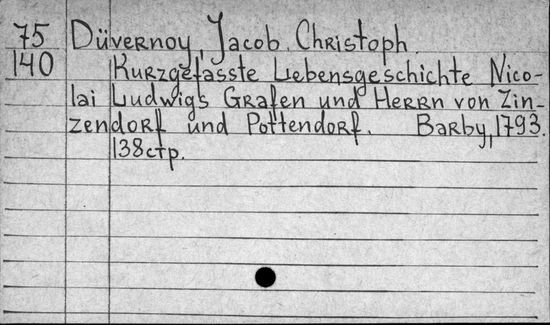 75 Düvernoy, Jacob Christoph
140 Kurzgefasste Lebensgeschichte Nico-
lai Ludwigs Grafen und Herrn von Zin-
zendorf und Pottendorf. Barby, 1793.
138 стр.